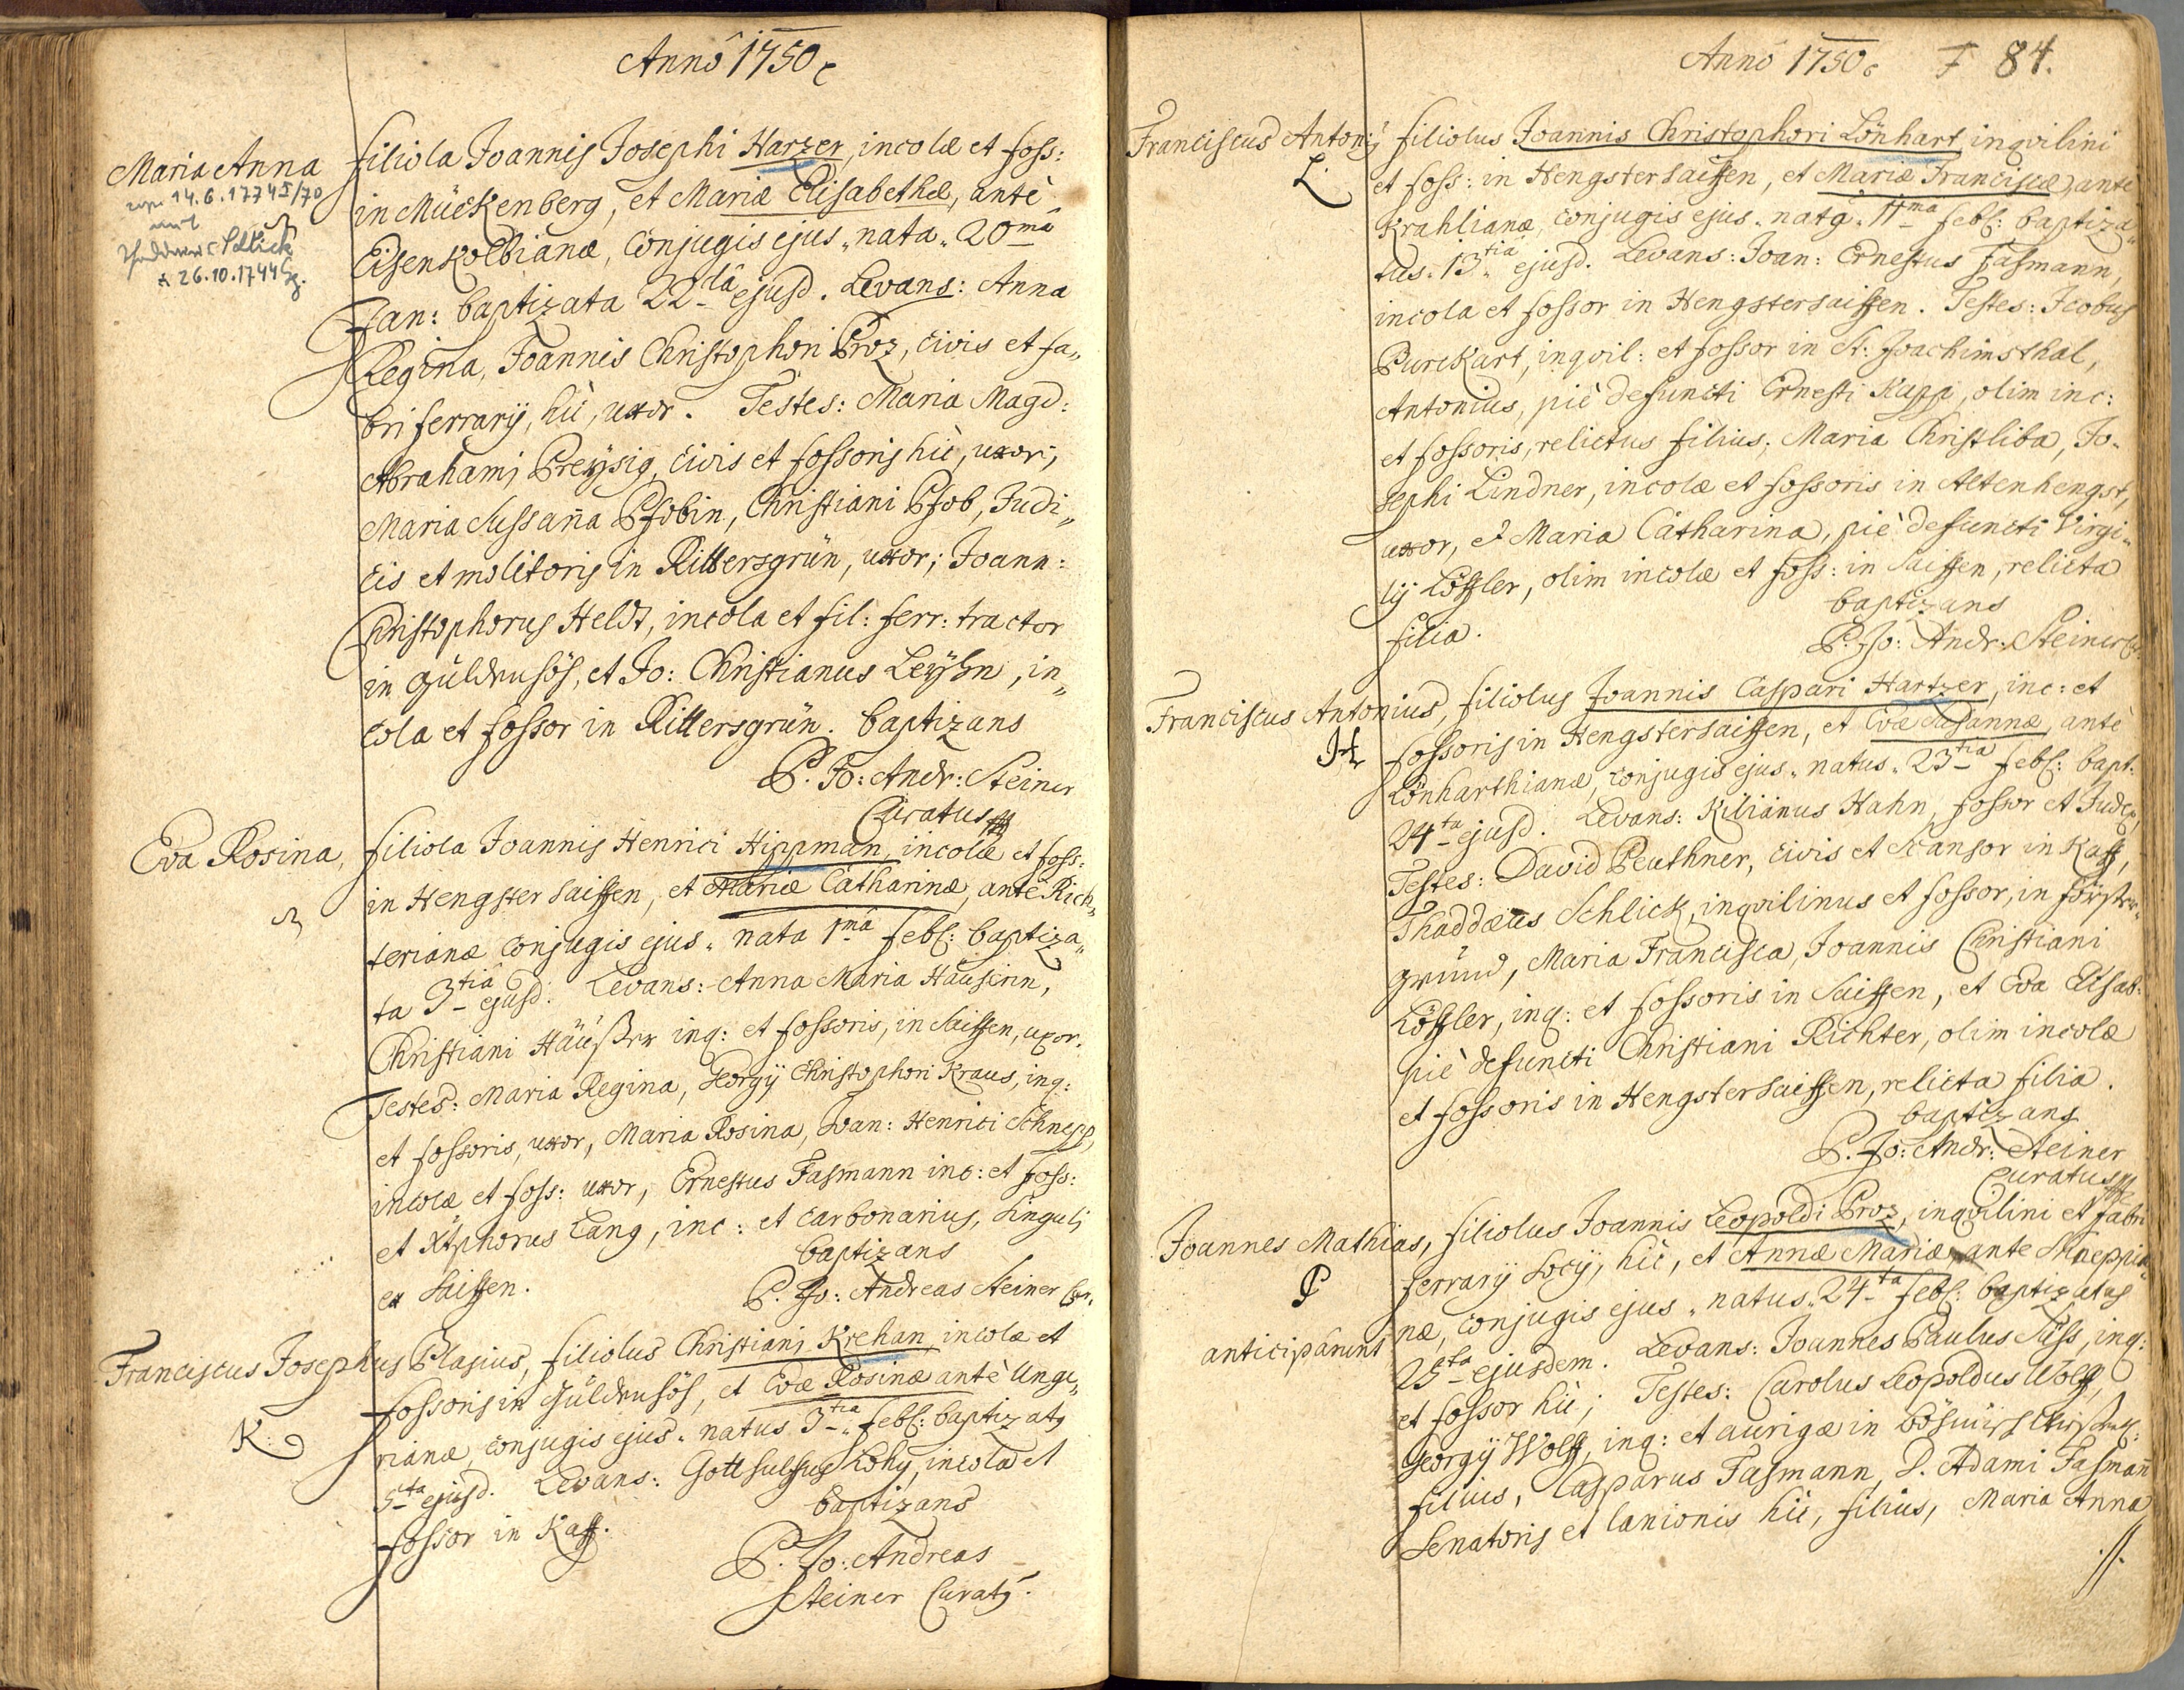 Anno 1750
Maria Anna
14.6.1774 5/70
mit
Schlick
* 26.10.1744
filiola Joannis Josephi Harzer, incolæ et foss:
in Mückenberg, et Mariæ Elisabethæ, antè
Eisenkolbianæ, conjugis ejus „ nata „ 20ma
Jan: baptizata 22da ejusd. Levans: Anna
Regina, Joannis Christophori Proz, civis et fa„
bri ferrarij, hic, uxor. Testes: Maria Magd:
Abrahami Preysig, civis et fossoris hic, uxor;
Maria Sussaña Pfobin, Christiani Pfob, Judi„
cis et molitoris in Rittersgrün, uxor; Joann:
Christophorus Heldt, incola et fil: ferr: tractor
in Güldnhöh, et Jo: Christianus Leyhn, in„
cola et fossor in Rittersgrün. baptizans
P. Jo: Andr: Steiner
Curatus
Eva Rosina,
filiola Joannis Henrici Hippman, incolæ et foss:
in Hengstersaiffen, et Mariæ Catharinæ, antè Rich„
terianæ conjugis ejus „ nata 1ma feb: baptiza„
ta 3tia ejusd. Levans: Anna Maria Häuserin,
Christiani Häußer inq: et fossoris, in Saiffen, uxor.
Testes: Maria Regina, Georgij Christophori Kraus, inq:
et fossoris, uxor, Maria Rosina, Joan: Henrici Schnepp,
incolæ et foss: uxor, Ernestus Fasmann inc: et foss:
et Xtphorus Lang, inc: et carbonarius, singuli
ex Saiffen.
baptizans
P. Jo: Andreas Steiner Cur.
Franciscus Josephus Blasius, filiolus Christiani Krehan, incolæ et
K.
fossoris in Güldnhöh, et Evæ Rosinæ antè Unge„
rianæ, conjugis ejus „ natus 3tia feb: baptizatq
5ta ejusd. Levans: Gotthulfus Lohy, incola et
fossor in Kaff.
baptizans
P. Jo: Andreas
Steiner Curatq.
Anno 1750 F 84.
Franciscus Antonij
L.
filiolus Joannis Christophori Lönhart, inqvilini
et foss: in Hengstersaiffen, et Mariæ Franciscæ, ante
Krahlianæ, conjugis ejus „ natq „ 11ma feb: baptiza„
tus. 13tia ejusd. Levans: Joan: Ernestus Fasmann,
incola et fossor in Hengstersaiffen. Testes: Jcobus
Purckart, inqvil: et fossor in St: Joachimsthal,
Antonius, piè defuncti Ernesti Kapp, olim inc:
et fossoris, relictus filius, Maria Christliba, Jo„
sephi Lindner, incolæ et fossoris in Altenhengst,
uxor, et Maria Catharina, piè defuncti Virgi„
lij Löffler, olim incolæ et foss: in Saiffen, relicta
filia.
baptizans
P. Jo: Andr: Steiner Cur.
Franciscus Antonius, filiolus Joannis Caspari Hartzer, inc: et
H
fossoris in Hengstersaiffen, et Evæ Susannæ, antè
Lönharthianæ, conjugis ejus „ natus „ 23tia feb: bapt:
24ta ejusd. Levans: Kilianus Hahn, fossor et Judex,
Testes: David Peuthner, civis et Mansor in Kaff,
Thaddæus Schlick, inqvilinus et fossor, in Förster„
grund, Maria Francisca, Joannis Christiani
Löffler, inq: et fossoris in Saiffen, et Eva Elisab:
piè defuncti Christiani Richter, olim incolæ
et fossoris in Hengstersaiffen, relicta filia.
baptizans
P. Jo: Andr: Steiner
Curatus
Joannes Mathias, filiolus Joannis Leopoldi Proz, inqvilini et fabri
P
ferrarij Socij, hic, et Annæ Mariæ, ante Schneppia„
næ, conjugis ejus „ natus „ 24ta feb: baptizatus
anticipârunt
25ta ejusdem. Levans: Joannes Paulus Süss, inq:
et fossor hic; Testes: Carolus Leopoldus Wolff,
Georgij Wolff, inq: et aurigæ in
filius, Casparus Fasmann, D. Adami Fasmañ
Senatoris et lanionis hic, filius, Maria Anna
.//.